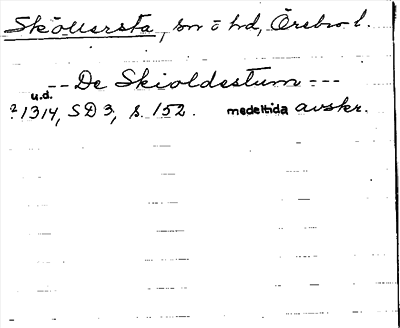 Sköllersta, sn o hd, Örebro l.
-- De Skioldestum ---
u.d.
? 1314, SD 3, s. 152. medeltida avskr.